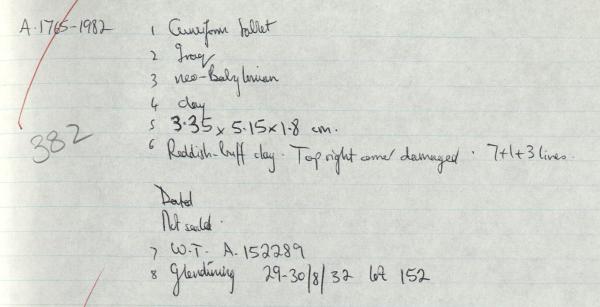 A.1765-1982 1 Cuneiform tablet
2 Iraq
3 neo-Babylonian
4 clay
5 3.35 x 5.15 x 1.8 cm.
382
6 Reddish-buff clay. Top right corner damaged. 7+1+3 lines.
Dated
Not sealed.
7 W.T. A.152289
8 Glendining 29-30/8/32 lot 152